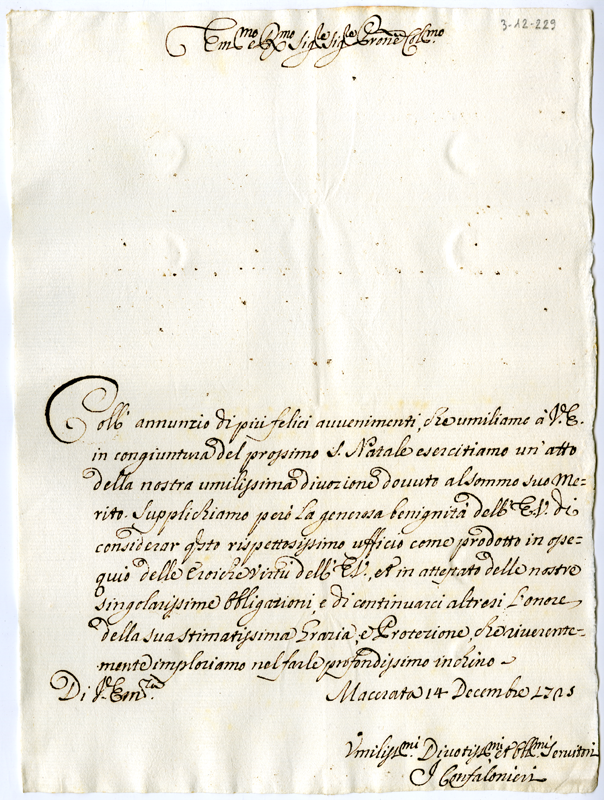 3-12-229
Em.mo e R.mo Sig.re Sig.re Prone Col.mo
Coll' annunzio di più felici avvenimenti, che umiliamo à V.E.
in congiuntura del prossimo S. Natale esercitiamo un' atto
della nostra umilissima divozione dovuto al sommo suo Me=
rito. Supplichiamo però la generosa benignità dell' E.V. di
considerar q̃sto rispettosissimo uffizio come prodotto in osse=
quio delle Eroiche Virtù dell' E.V., et in attestato delle nostre
singolarissime obligazioni, e di continuarci altresi l'onore
della sua stimatissima Grazia, e Protezione, che riverente=
mente imploriamo nel farle profondissimo inchino
Di V. Em.za Macerata 14 Decembre 1725
Vmiliss.mi Divotiss.mi, et Obl.mi Servitori
I Confalonieri